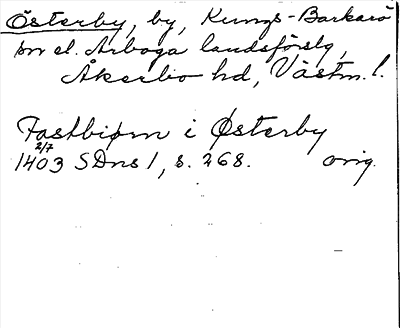 Österby, by, Kungs-Barkarö
sn el. Arboga landsförslg,
Åkerbo hd, Västm. l.
Fastbiørn i Østerby
2/7
1403 SDns 1, s. 268. orig.